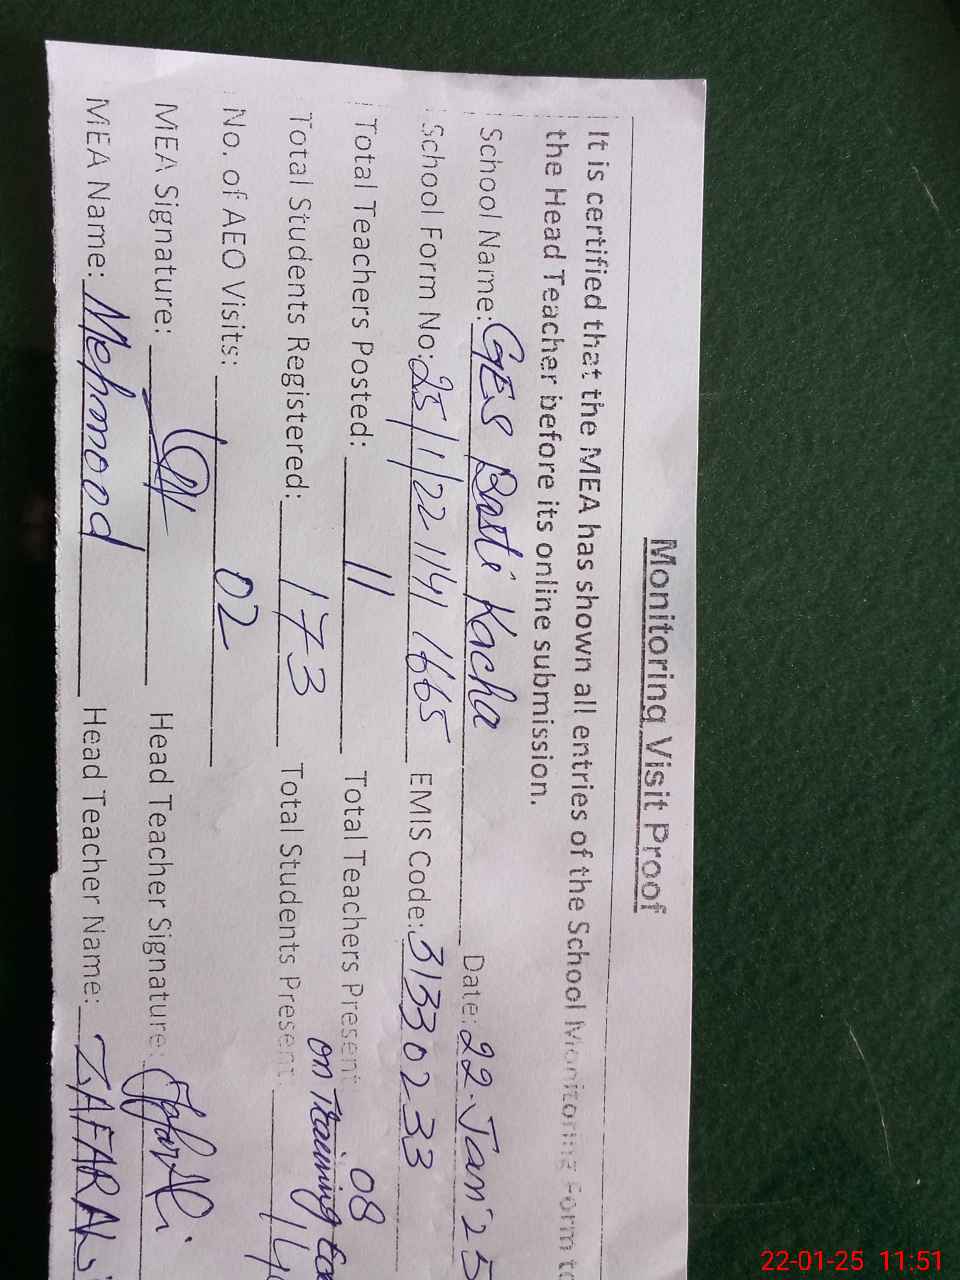 Monitoring Visit Proof
It is certified that the MEA has shown all entries of the School Monitoring Form to
the Head Teacher before its online submission.
School Name: GES Basti Kacha Date: 22-Jan'25
School Form No: 25/1/22 1141 1665 EMIS Code: 31330233
Total Teachers Posted: 11 Total Teachers Present 08
on Training
Total Students Registered: 173 Total Students Present
No. of AEO Visits: 02
MEA Signature: Head Teacher Signature:
MEA Name: Mehmood Head Teacher Name: ZAFAR ALi
22-01-25 11:51